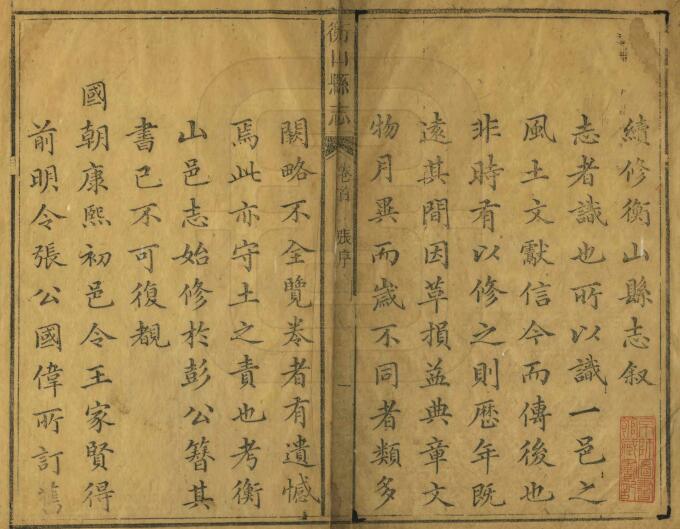 續修衡山縣志叙
志者識也所以識一邑之
風土文獻信今而傳後也
非時有以修之則歷年既
遠其間因革損益典章文
物月異而歲不同者類多
衡山縣志
卷首
張序
一
闕略不全覽卷者有遺憾
焉此亦守土之責也考衡
山邑志始修於彭公簪其
書已不可復覩
國朝康熙初邑令王家賢得
前明令張公國偉所訂舊